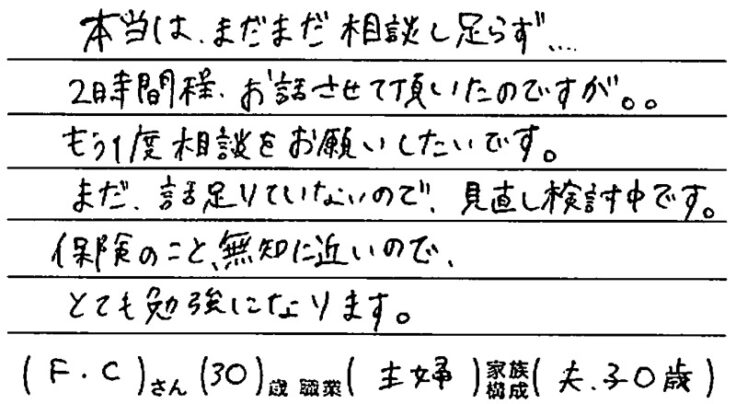 本当は、まだまだ相談し足らず…
2時間程、お話させて頂いたのですが。。
もう1度相談をお願いしたいです。
まだ、話足りていないので、見直し検討中です。
保険のこと、無知に近いので、
とても勉強になります。
(F.C)さん(30)歳 職業(主婦)家族構成(夫.子0歳)